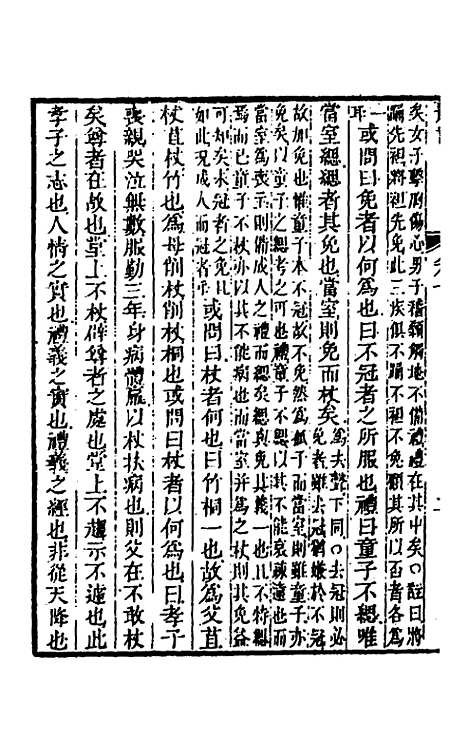 矣女子擊胸傷心男子稽顙觸地不備禮禮在其中矣〇註曰將
踊先袒將袒先免此三疾俱不踊不袒不免顧其所以否者各為
耳
或問曰免者以何為也曰不冠者之所服也禮曰童子不緦唯
當室緦緦者其免也當室則免而杖矣
為去聲下同〇去冠則必
免者雖去冠猶嫌於不冠
故加免也惟童子本不冠故不免然為孤子而當室則雖童子亦
免矣以童子之緦考之可也禮童子不緦以其不能哀疎遠也而
當室為喪主則備成人之禮而緦矣哀免其義一也且不特緦
焉而已童子不杖亦以其不能病也而當室并為之杖則其免益
可知矣未冠者之免且
如此況成人而冠者乎
或問曰杖者何也曰竹桐一也故為父苴
杖苴杖竹也為母削杖削杖桐也或問曰杖者以何為也曰孝子
喪親哭泣無數服勤三年身病體羸以杖扶病也則父在不敢杖
矣尊者在故也堂上不杖辟尊者之處也堂上不趨示不遽也此
孝子之志也人情之實也禮義之實也禮義之經也非從天降也